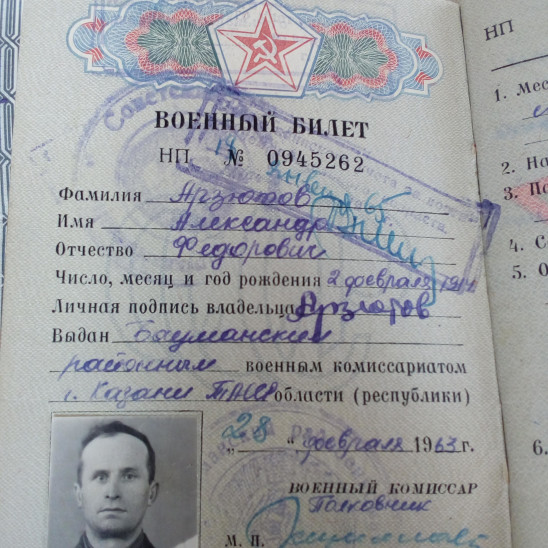 ВОЕННЫЙ БИЛЕТ
НП № 0945262
Фамилия Арзютов
Имя Александр
Отчество Федорович
Число, месяц и год рождения 2 февраля
Личная подпись владельца Арзютов
Выдан Бауманским
районным военным комиссариатом
г. Казани ТАССР области (республики)
"28" февраля 1963 г.
ВОЕННЫЙ КОМИССАР
Полковник
М. П.
НП
1.
2. На
3.
4. С
5. О
6.